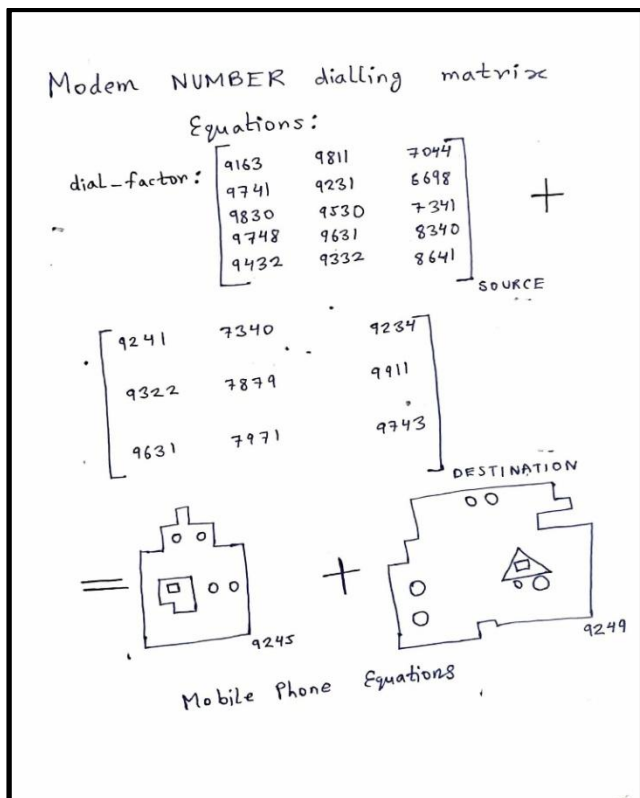 Modem NUMBER dialling matrix
Equations:
dial_factor: 9163 9811 7044
9741 9231 6698 +
9830 9530 7341
9748 9631 8340
9432 9332 8641
SOURCE
9241 7340 9234
9322 7879 9911
9631 7971 9743
DESTINATION
= +
9245 9249
Mobile Phone Equations